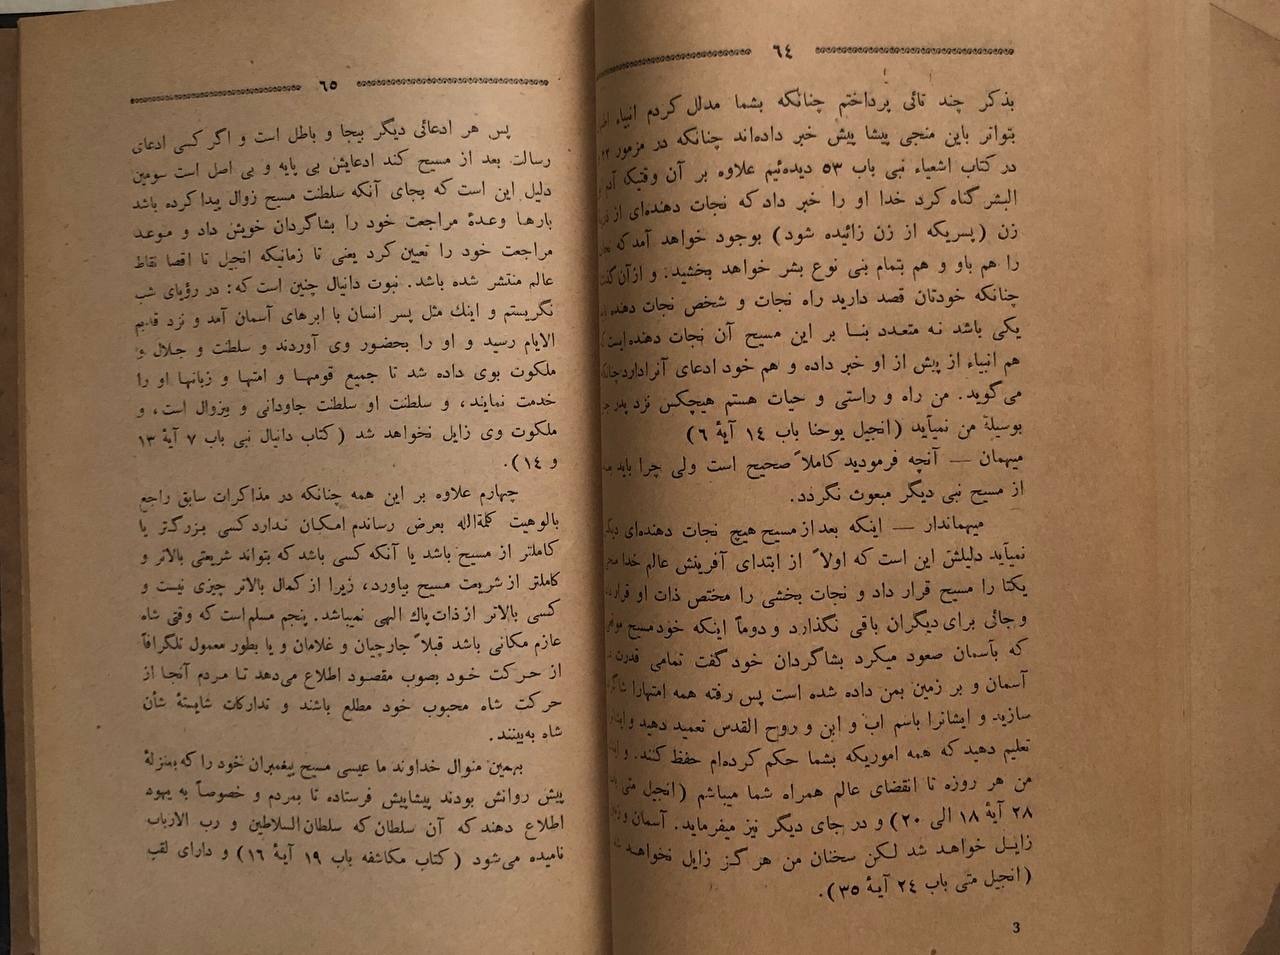 ٦٤
بذکر چند تائی پرداختم چنانکه بشما مدلل کردم انبیاء
بتواتر باین منجی پیشا پیش خبر داده‌اند چنانکه در مزمور ٢٢
در کتاب اشعیاء نبی باب ٥٣ دیده‌ئیم علاوه بر آن وقتیکه آدم
البشر گناه کرد خدا او را خبر داد که نجات دهنده‌ای از
زن (پسریکه از زن زائیده شود) بوجود خواهد آمد که
را هم باو و هم بتمام بنی نوع بشر خواهد بخشید. و از آن
چنانکه خودتان قصد دارید راه نجات و شخص نجات دهنده
یکی باشد نه متعدد بنا بر این مسیح آن نجات دهنده است
هم انبیاء از پیش از او خبر داده و هم خود ادعای آنرا دارد چنانکه
می‌گوید. من راه و راستی و حیات هستم هیچکس نزد پدر جز
بوسیلهٔ من نمیآید (انجیل یوحنا باب ١٤ آیهٔ ٦)
میهمان — آنچه فرمودید کاملاً صحیح است ولی چرا باید
از مسیح نبی دیگر مبعوث نگردد.
میهماندار — اینکه بعد از مسیح هیچ نجات دهنده‌ای
نمیآید دلیلش این است که اولاً از ابتدای آفرینش عالم خدا
یکتا را مسیح قرار داد و نجات بخشی را مختص ذات او قرار
و جائی برای دیگران باقی نگذارد و دوماً اینکه خود مسیح
که بآسمان صعود میکرد بشاگردان خود گفت تمامی قدرت
آسمان و بر زمین بمن داده شده است پس رفته همه امتهارا
سازید و ایشانرا باسم اب و ابن و روح القدس تعمید دهید و
تعلیم دهید که همه اموریکه بشما حکم کرده‌ام حفظ کنند. و
من هر روزه تا انقضای عالم همراه شما میباشم (انجیل متی
٢٨ آیهٔ ١٨ الی ٢٠) و در جای دیگر نیز میفرماید. آسمان و
زایل خواهد شد لکن سخنان من هرگز زایل نخواهد
(انجیل متی باب ٢٤ آیهٔ ٣٥).
3
٦٥
پس هر ادعائی دیگر بیجا و باطل است و اگر کسی ادعای
رسالت بعد از مسیح کند ادعایش بی پایه و بی اصل است سومین
دلیل این است که بجای آنکه سلطنت مسیح زوال پیدا کرده باشد
بارها وعدهٔ مراجعت خود را بشاگردان خویش داد و موعد
مراجعت خود را تعیین کرد یعنی تا زمانیکه انجیل تا اقصا نقاط
عالم منتشر شده باشد. نبوت دانیال چنین است که: در رؤیای شب
نگریستم و اینك مثل پسر انسان با ابرهای آسمان آمد و نزد قدیم
الایام رسید و او را بحضور وی آوردند و سلطنت و جلال و
ملکوت بوی داده شد تا جمیع قومها و امتها و زبانها او را
خدمت نمایند، و سلطنت او سلطنت جاودانی و بیزوال است، و
ملکوت وی زایل نخواهد شد (کتاب دانیال نبی باب ٧ آیهٔ ١٣
و ١٤).
چهارم علاوه بر این همه چنانکه در مذاکرات سابق راجع
بالوهیت کلمةالله بعرض رساندم امکان ندارد کسی بزرگتر یا
کاملتر از مسیح باشد یا آنکه کسی باشد که بتواند شریعتی بالاتر و
کاملتر از شریعت مسیح بیاورد، زیرا از کمال بالاتر چیزی نیست و
کسی بالاتر از ذات پاك الهی نمیباشد. پنجم مسلم است که وقتی شاه
عازم مکانی باشد قبلاً جارچیان و غلامان و یا بطور معمول تلگرافاً
از حرکت خود بصوب مقصود اطلاع می‌دهد تا مردم آنجا از
حرکت شاه محبوب خود مطلع باشند و تدارکات شایستهٔ شأن
شاه به‌بینند.
بهمین منوال خداوند ما عیسی مسیح پیغمبران خود را که بمنزلهٔ
پیش روانش بودند پیشاپیش فرستاده تا بمردم و خصوصاً به یهود
اطلاع دهند که آن سلطان که سلطان‌السلاطین و رب الارباب
نامیده می‌شود (کتاب مکاشفه باب ١٩ آیهٔ ١٦) و دارای لقب